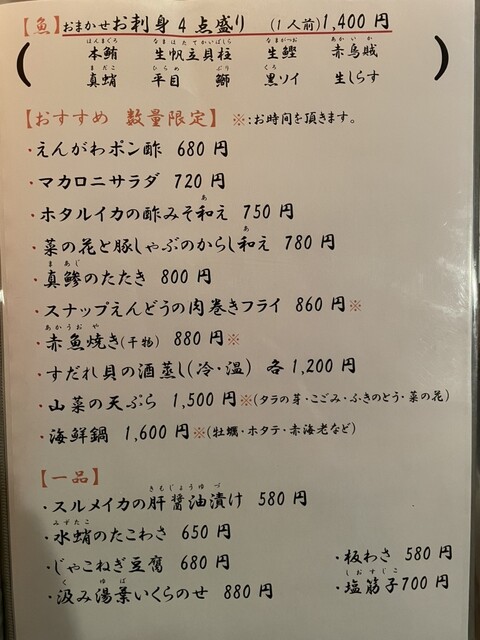 【魚】おまかせお刺身4点盛り (1人前)1,400円
ほんまぐろ なまほたてかいばしら なまがつお あかいか
本鮪 生帆立貝柱 生鰹 赤烏賊
まだこ ひらめ ぶり くろ
真蛸 平目 鰤 黒ソイ 生しらす
【おすすめ 数量限定】 ※:お時間を頂きます。
・えんがわポン酢 680円
・マカロニサラダ 720円
あ
・ホタルイカの酢みそ和え 750円
あ
・菜の花と豚しゃぶのからし和え 780円
まあじ
・真鯵のたたき 800円
・スナップえんどうの肉巻きフライ 860円※
あかうおや
・赤魚焼き(干物) 880円※
・すだれ貝の酒蒸し(冷・温) 各1,200円
・山菜の天ぷら 1,500円※(タラの芽・こごみ・ふきのとう・菜の花)
・海鮮鍋 1,600円※(牡蠣・ホタテ・赤海老など)
【一品】
きもじょうゆづ
・スルメイカの肝醤油漬け 580円
みずたこ
・水蛸のたこわさ 650円
・じゃこねぎ豆腐 680円 ・板わさ 580円
く ゆば しおすじこ
・汲み湯葉いくらのせ 880円 ・塩筋子700円